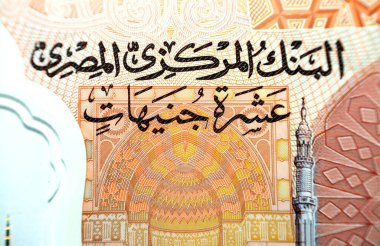 البنك المركزى المصرى
عَشَرَة جُنَيهَاتٍ